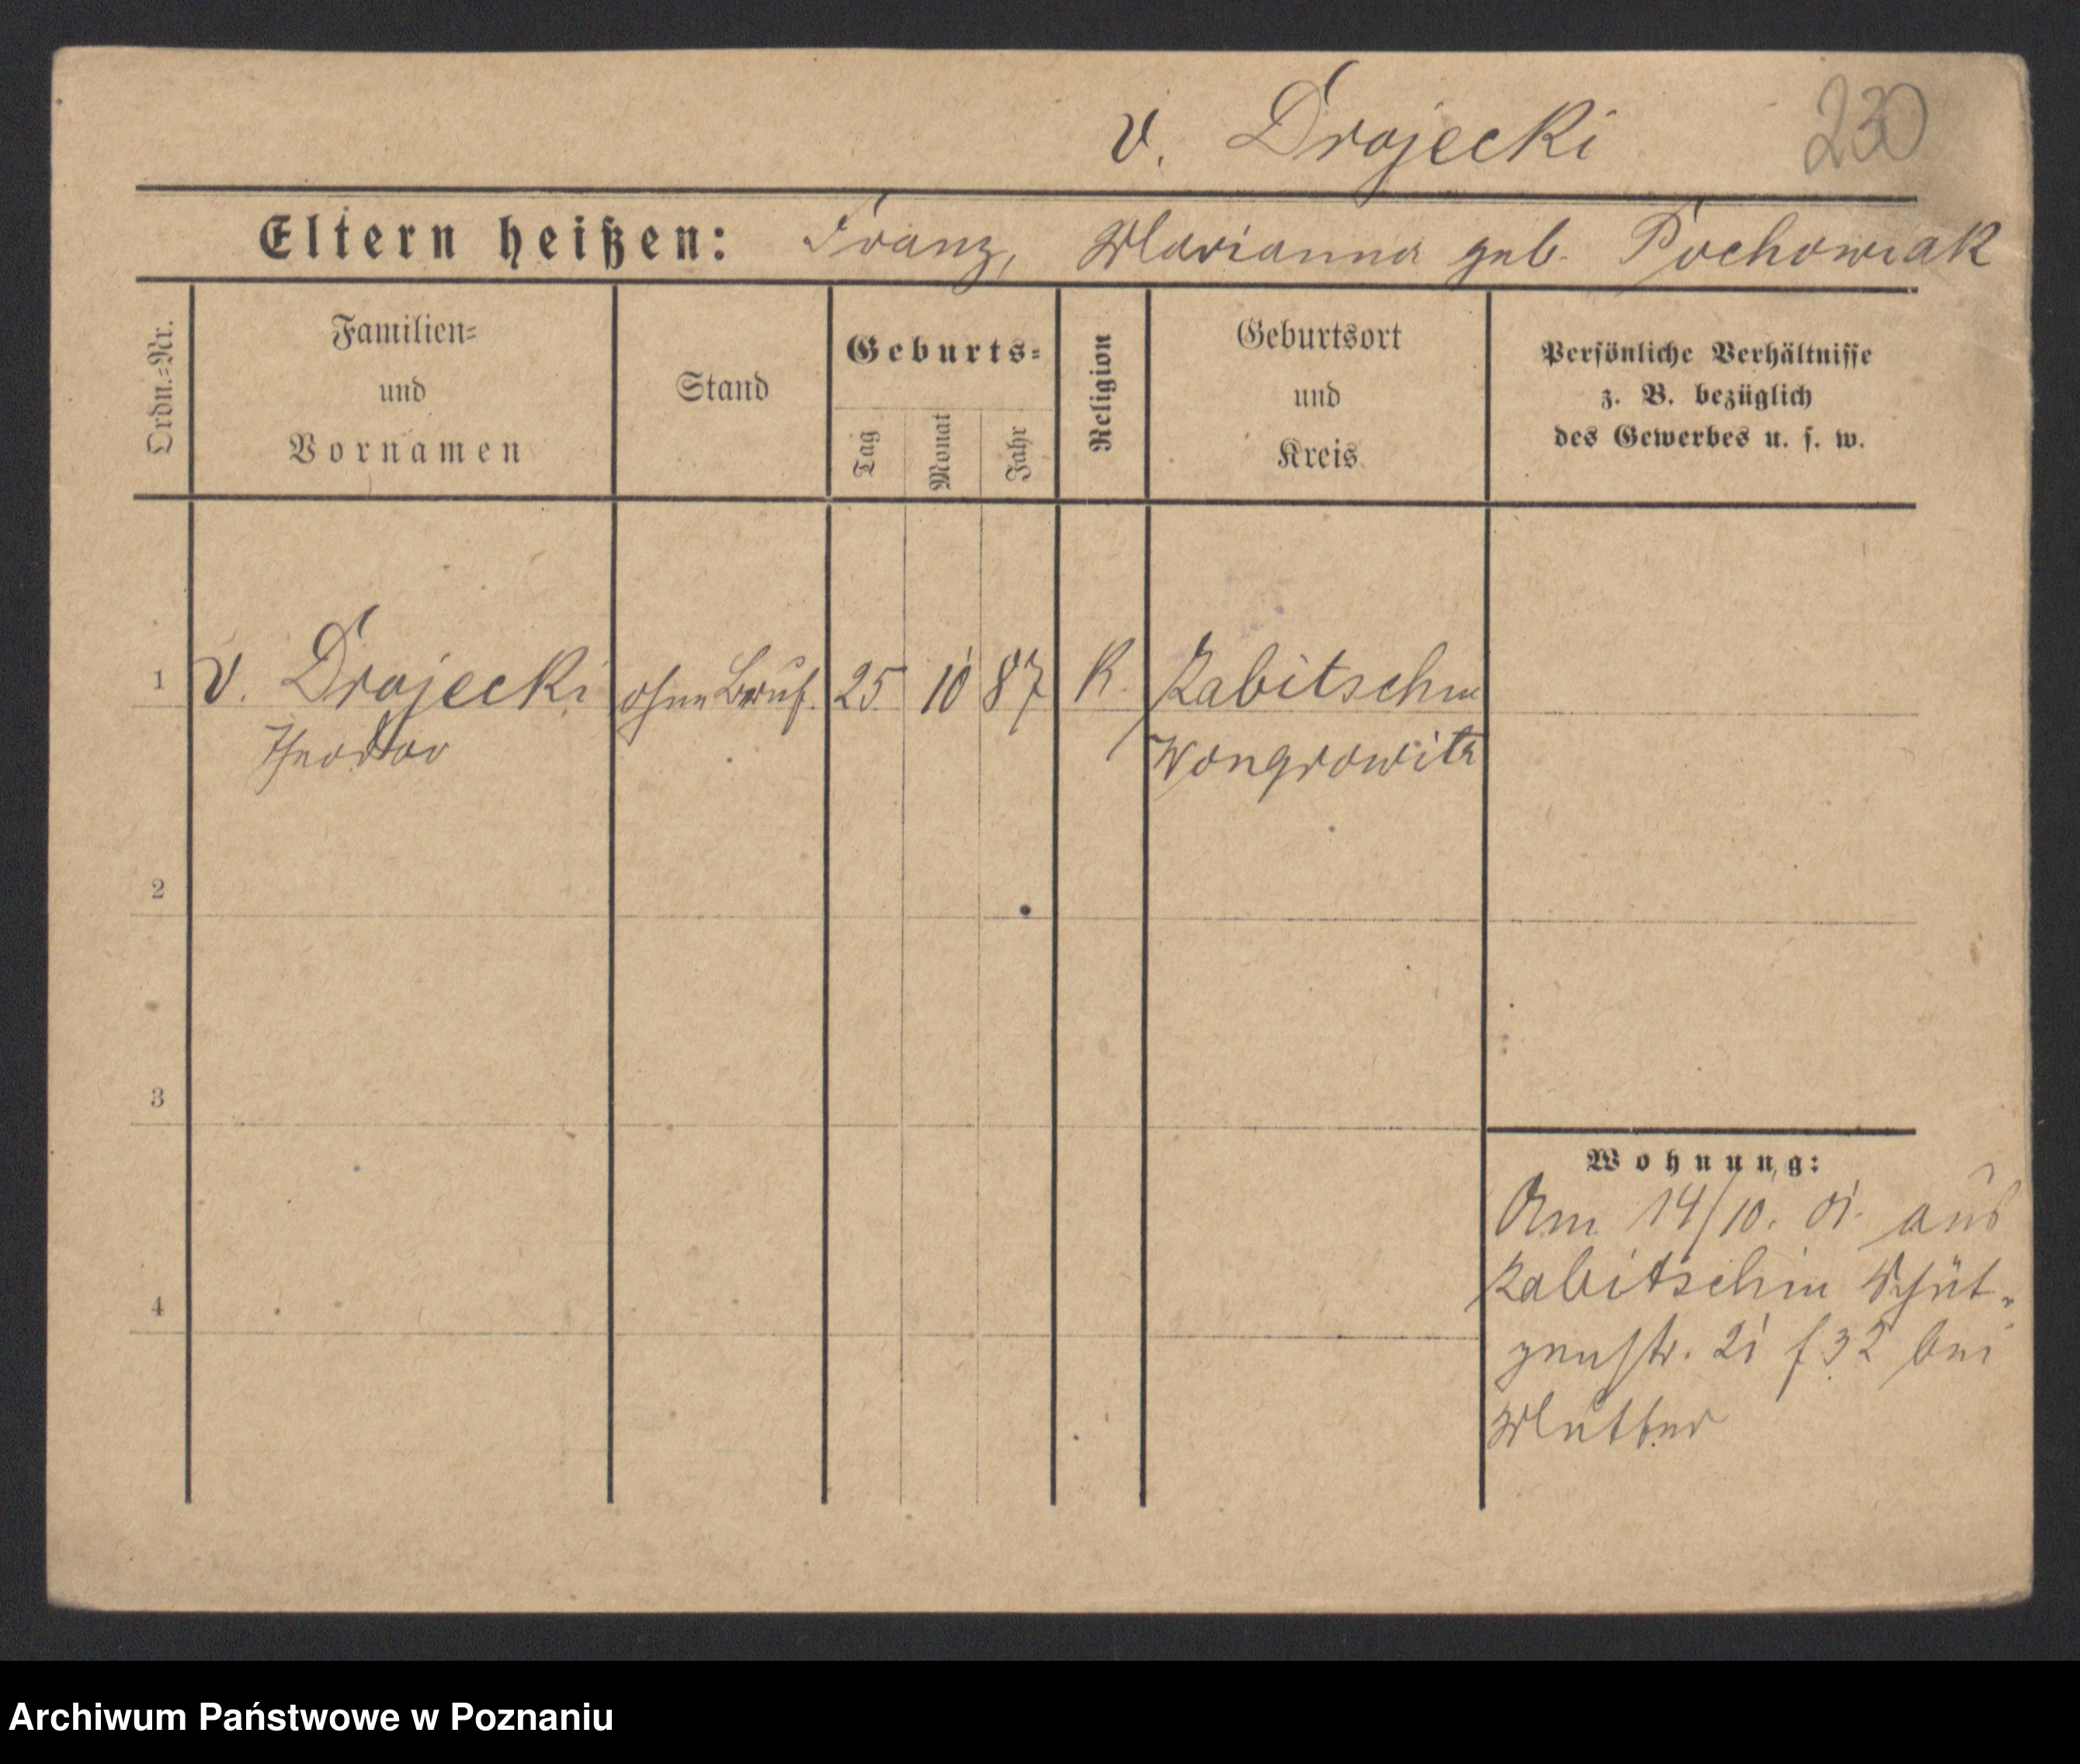 v. Drojecki 230
Eltern heißen: Franz, Marianna geb. Pochowiak
Ordn.=Nr.
Familien=
und
Vornamen
Stand
Geburts=
Tag
Monat
Jahr
Religion
Geburtsort
und
Kreis
Persönliche Verhältnisse
z. B. bezüglich
des Gewerbes u. s. w.
1 v. Drojecki ohne Beruf. 25 10 87 K. Zabitschin
Theodor Wongrowitz
2
3
4
Wohnung:
Am 14/10. 01. aus
Zabitschin Schüt-
zenstr. 21 f 32 bei
Mutter
Archiwum Państwowe w Poznaniu